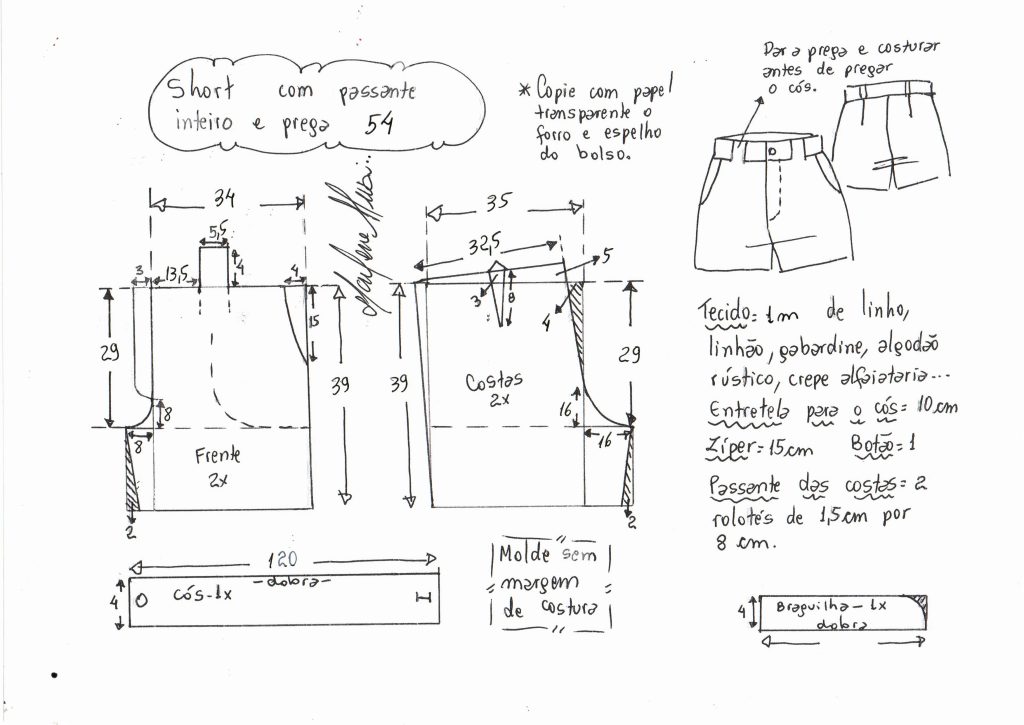 Short com passante
inteiro e prega 54
* Copie com papel
transparente o
forro e espelho
do bolso.
Dar a prega e costurar
antes de pregar
o cós.
34
5,5
4
3
13,5
4
15
29
8
8
39
Frente
2x
2
35
32,5
5
3
8
4
39
29
Costas
2x
16
16
2
Tecido = 1m de linho,
linhão, gabardine, algodão
rústico, crepe alfaiataria...
Entretela para o cós = 10cm
Zíper = 15cm Botão = 1
Passante das costas = 2
rolotés de 1,5cm por
8 cm.
120
-dobra-
4
cós-1x
Molde sem
margem
de costura
4
Braguilha - 1x
dobra